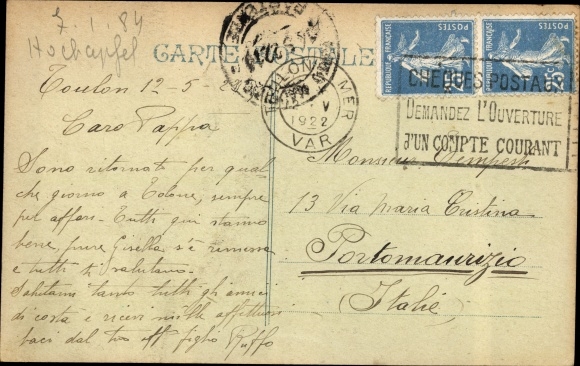 7.1.84
Hochapfel
CARTE POSTALE
POSTES
REPUBLIQUE FRANÇAISE
25c
POSTES
REPUBLIQUE FRANÇAISE
25c
TOULON
S. MER
V
1922
VAR
CHEQUES POSTAUX
DEMANDEZ L'OUVERTURE
D'UN COMPTE COURANT
Toulon 12-5-
Caro Pappa
Sono ritornato per qual
che giorno a Tolone, sempre
per affari - Tutti qui stanno
bene, pure Gisella s'è rimessa
e tutti ti salutano -
Salutami tanto tutti gli amici
di costà e ricevi mille affettuosi
baci dal tuo aff figlio Ruffo
Monsieur
13 Via Maria Cristina
Portomaurizio
(Italie)